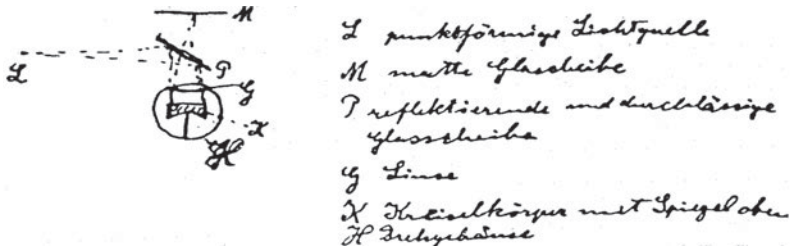 M
L
P
G
K
H
L punktförmige Lichtquelle
M matte Glasscheibe
P reflektierende und durchlässige
Glasscheibe
G Linse
K Kreiselkörper mit Spiegel oben
H Drehgehäuse